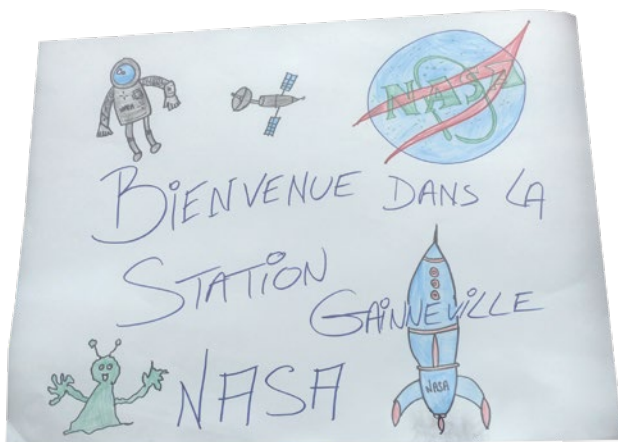 NASA
NASA
BIENVENUE DANS LA
STATION
GAINNEVILLE
NASA
NASA